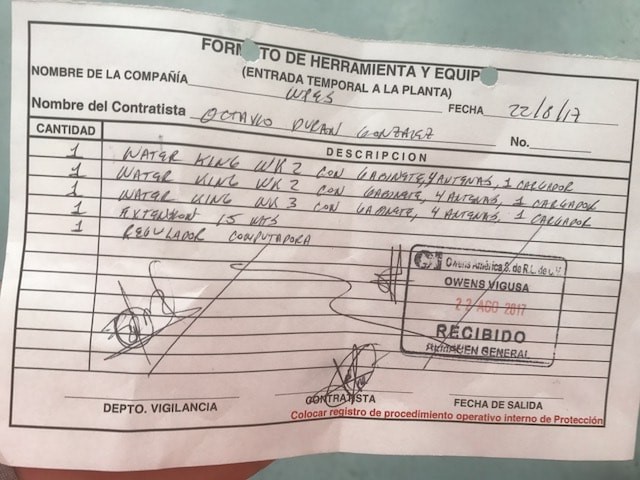 FORMATO DE HERRAMIENTA Y EQUIPO
(ENTRADA TEMPORAL A LA PLANTA)
NOMBRE DE LA COMPAÑÍA WRES FECHA 22/8/17
Nombre del Contratista OCTAVIO DURAN GONZALEZ No.
CANTIDAD DESCRIPCION
1 WATER KING WK2 CON GABINETE, 4 ANTENAS, 1 CARGADOR
1 WATER KING WK2 CON GABINETE, 4 ANTENAS, 1 CARGADOR
1 WATER KING WK3 CON GABINETE, 4 ANTENAS, 1 CARGADOR
1 EXTENSION 15 MTS
1 REGULADOR COMPUTADORA
Owens America S. de R.L. de C.V.
OWENS VIGUSA
22 AGO 2017
RECIBIDO
ALMACEN GENERAL
DEPTO. VIGILANCIA CONTRATISTA FECHA DE SALIDA
Colocar registro de procedimiento operativo interno de Protección